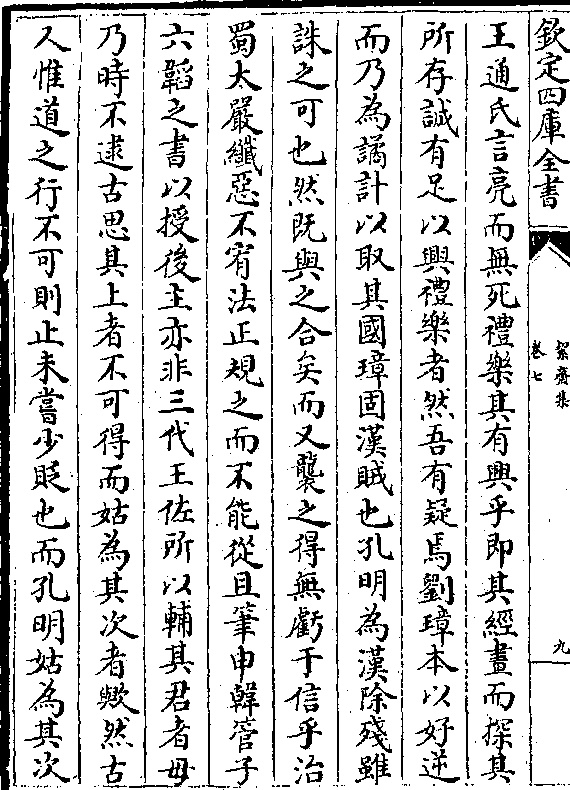 欽定四庫全書
絜齋集
卷七
九
王通氏言亮而無死禮樂其有興乎即其經畫而探其
所存誠有足以興禮樂者然吾有疑焉劉璋本以好逆
而乃為譎計以取其國璋固漢賊也孔明為漢除殘雖
誅之可也然既與之合矣而又襲之得無虧于信乎治
蜀太嚴纖惡不宥法正規之而不能從且筆申韓管子
六韜之書以授後主亦非三代王佐所以輔其君者毋
乃時不逮古思其上者不可得而姑為其次者歟然古
人惟道之行不可則止未嘗少貶也而孔明姑為其次